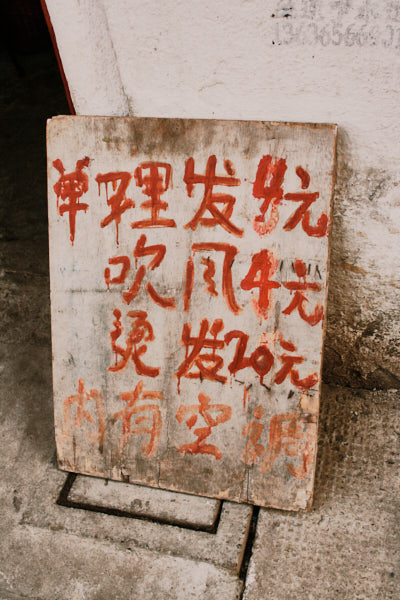 单理发元
吹风4元
烫发20元
内有空调